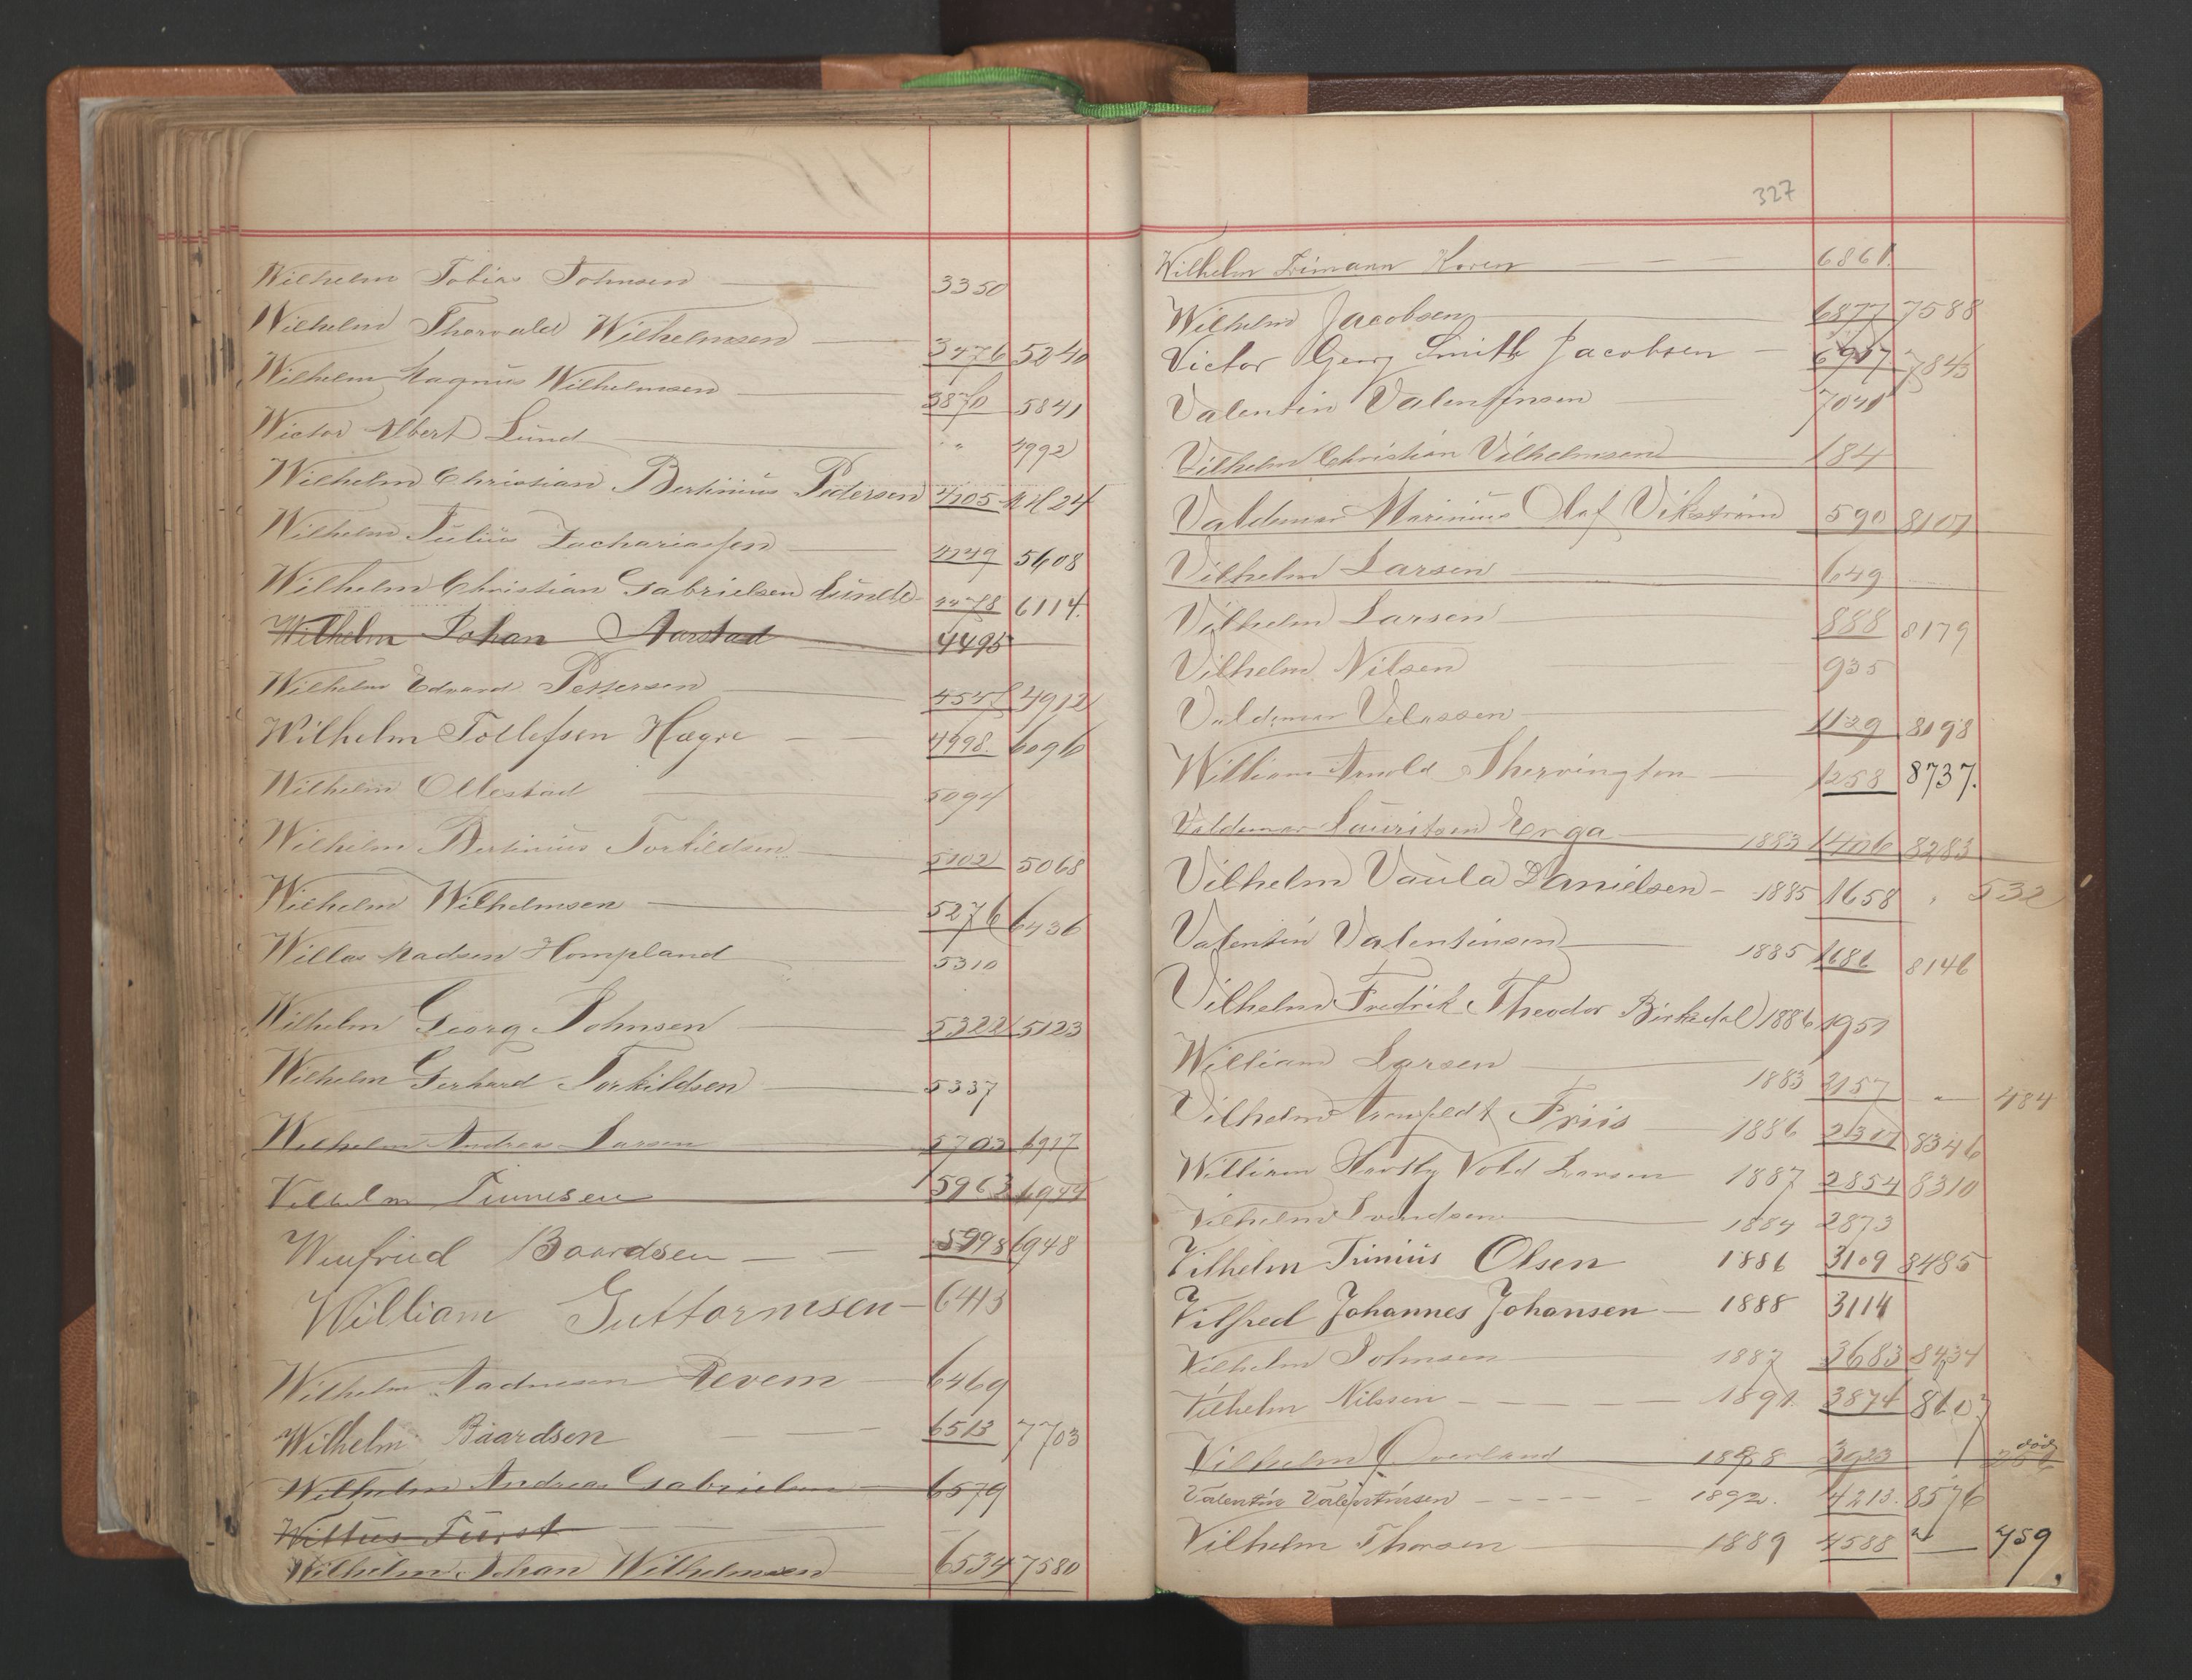 Wilhelm Tobias Johnsen 3350
Wilhelm Thorvald Wilhelmsen 3476 5240
Wilhelm Magnus Wilhelmsen 3870 5841
Wictor Albert Lund " " 4992
Wilhelm Christian Bertinius Pedersen 4205
Wilhelm Julius Zachariassen 4249 5608
Wilhelm Christian Gabrielsen Lunde 6114.
Wilhelm Johan Aarstad 4495
Wilhelm Edvard Pettersen 4912
Wilhelm Tollefsen Hagre 4998. 6096
Wilhelm Ollestad 5094
Wilhelm Bertinius Torkildsen 5102 5068
Wilhelm Wilhelmsen 5276 6436
Willas Madsen Hompland 5310
Wilhelm Georg Johnsen 5322 5123
Wilhelm Gerhard Torkildsen 5337
Wilhelm Andreas Larsen 5703 6917
Vilhelm 5963 6944
Winfried Baardsen 5998 6948
William Guttormsen 6413
Wilhelm Aadnesen Revem 6469
Wilhelm Baardsen 6513 7703
Wilhelm Andreas Gabrielsen 6579
Wittus Fürst
Wilhelm Johan Wilhelmsen 6534 7580
327
Wilhelm Frimann Koren 6861.
Wilhelm Jacobsen 6877 7588
Victor Georg Smith Jacobsen 6917 7845
Valentin Valentinsen 7041
Vilhelm Christian Vilhelmsen 184
Valdemar Marinius Olaf Vikstrøm 590 8107
Vilhelm Larsen 649
Vilhelm Larsen 888 8179
Vilhelm Nilsen 935
Valdemar 1129 8198
William Arnold Shervington 1258 8737.
Valdemar Lauritsen Erga 1883 1406 8283
Vilhelm Vaula Danielsen - 1885 1658 532
Valentin Valentinsen 1885 1686 8146
Vilhelm Fredrik Theodor Birkedal 1886 1951
William Larsen 1883 2157 " 484
Vilhelm Friis 1886 8346
William Vold Larsen 1887 2854 8310
Vilhelm Svendsen 1884 2873
Vilhelm Trinius Olsen 1886 3109 8485
Vilfred Johannes Johansen 1888 3114
Vilhelm Johnsen 1887 3683 8434
Vilhelm Nilssen 1891 3874 8607
Vilhelm Overland 1888 3923 død
Valentin Valentinsen 1892. 4213. 8576
Vilhelm Thorsen 1889 4588 " 759